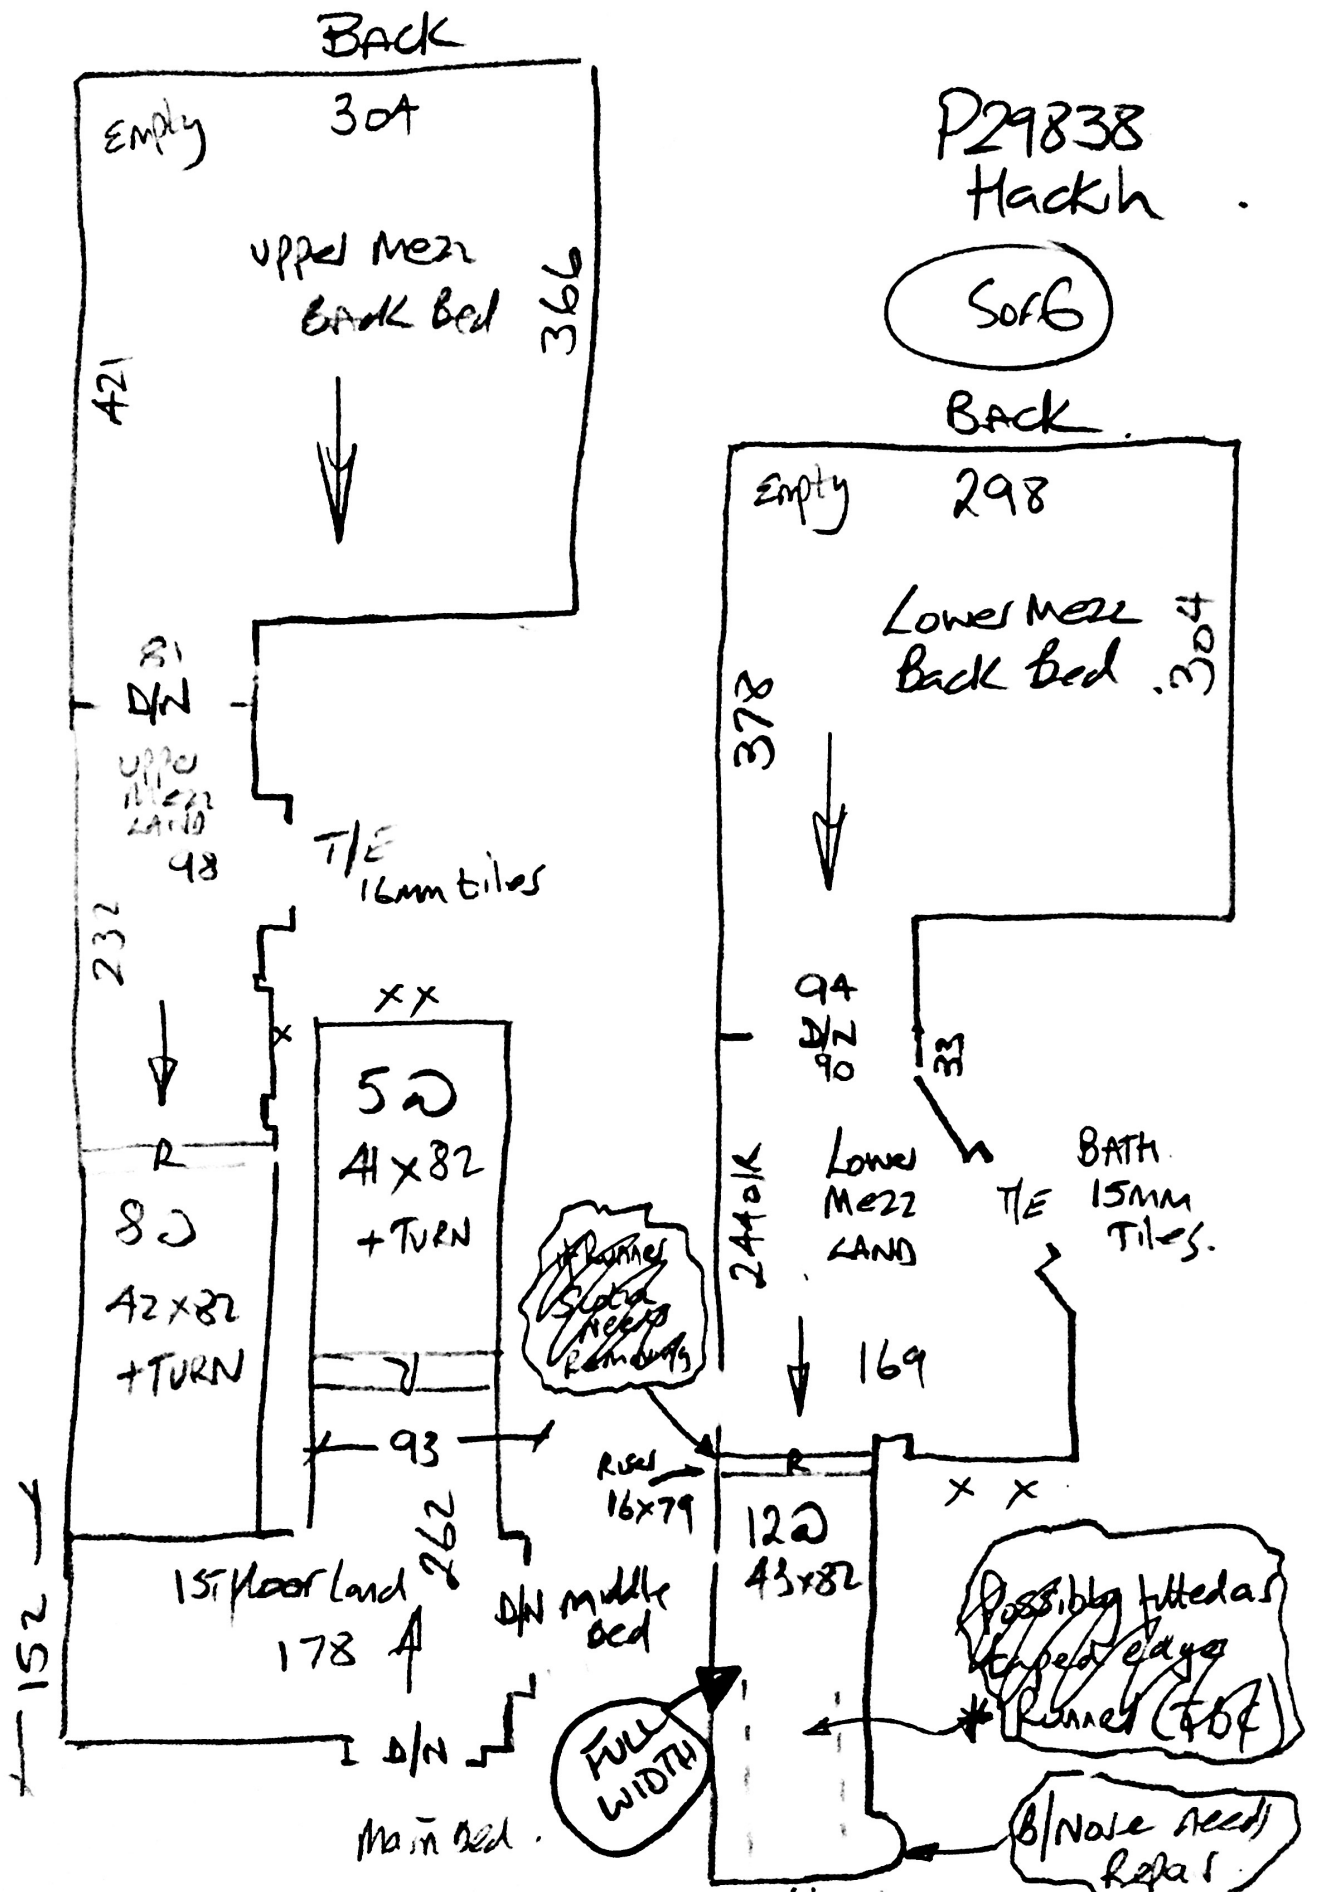 BACK
Empty
304
Upper Mezz
Back Bed
366
421
81
D/N
Upper
Mezz
LAND
98
232
T/E
16mm tiles
R
8
42x82
+TURN
xx
x
5
41x82
+TURN
93
262
152
1ST floor Land
178
D/N
Middle
Bed
D/N
Main Bed.
P29838
Hackih
5of6
BACK
Empty
298
Lower Mezz
Back Bed
304
378
94
D/N
90
33
Lower
Mezz
LAND
244 o/k
T/E
BATH
15MM
Tiles.
169
* Runner
Scotia
Needs
Removing
R
Riser
16x79
x x
12
43x82
FULL
WIDTH
Possibly fitted as
taped edge
* Runner (TBC)
B/Nose needs
Repair